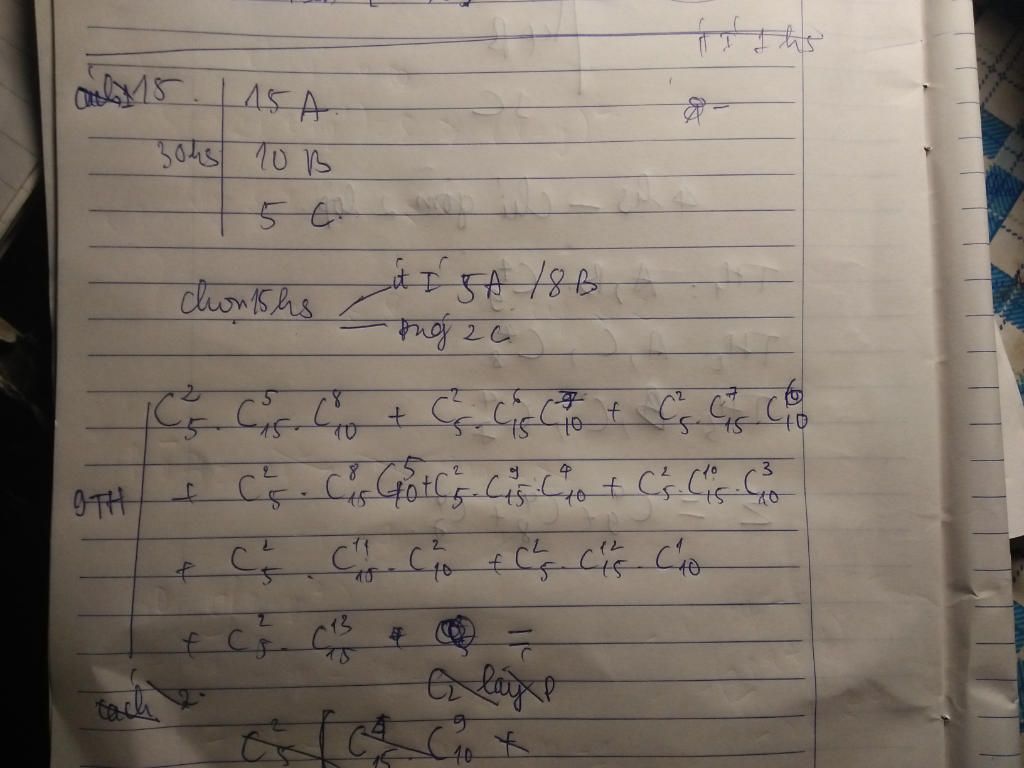 ít I 1 hs
15. | 15 A.
30hs | 10 B
5 C.
chọn 15hs ít I 5A / 8B
2 C
C₅². C₁₅⁵. C₁₀⁸ + C₅². C₁₅⁶ C₁₀⁷ + C₅². C₁₅⁷. C₁₀⁶
9TH + C₅². C₁₅⁸ C₁₀⁵ + C₅². C₁₅⁹. C₁₀⁴ + C₅². C₁₅¹⁰. C₁₀³
+ C₅². C₁₅¹¹. C₁₀² + C₅². C₁₅¹². C₁₀¹
+ C₅². C₁₅¹³ =
cách 2. C₂ lấy
C₅² [ C₁₅⁴ C₁₀⁹ +